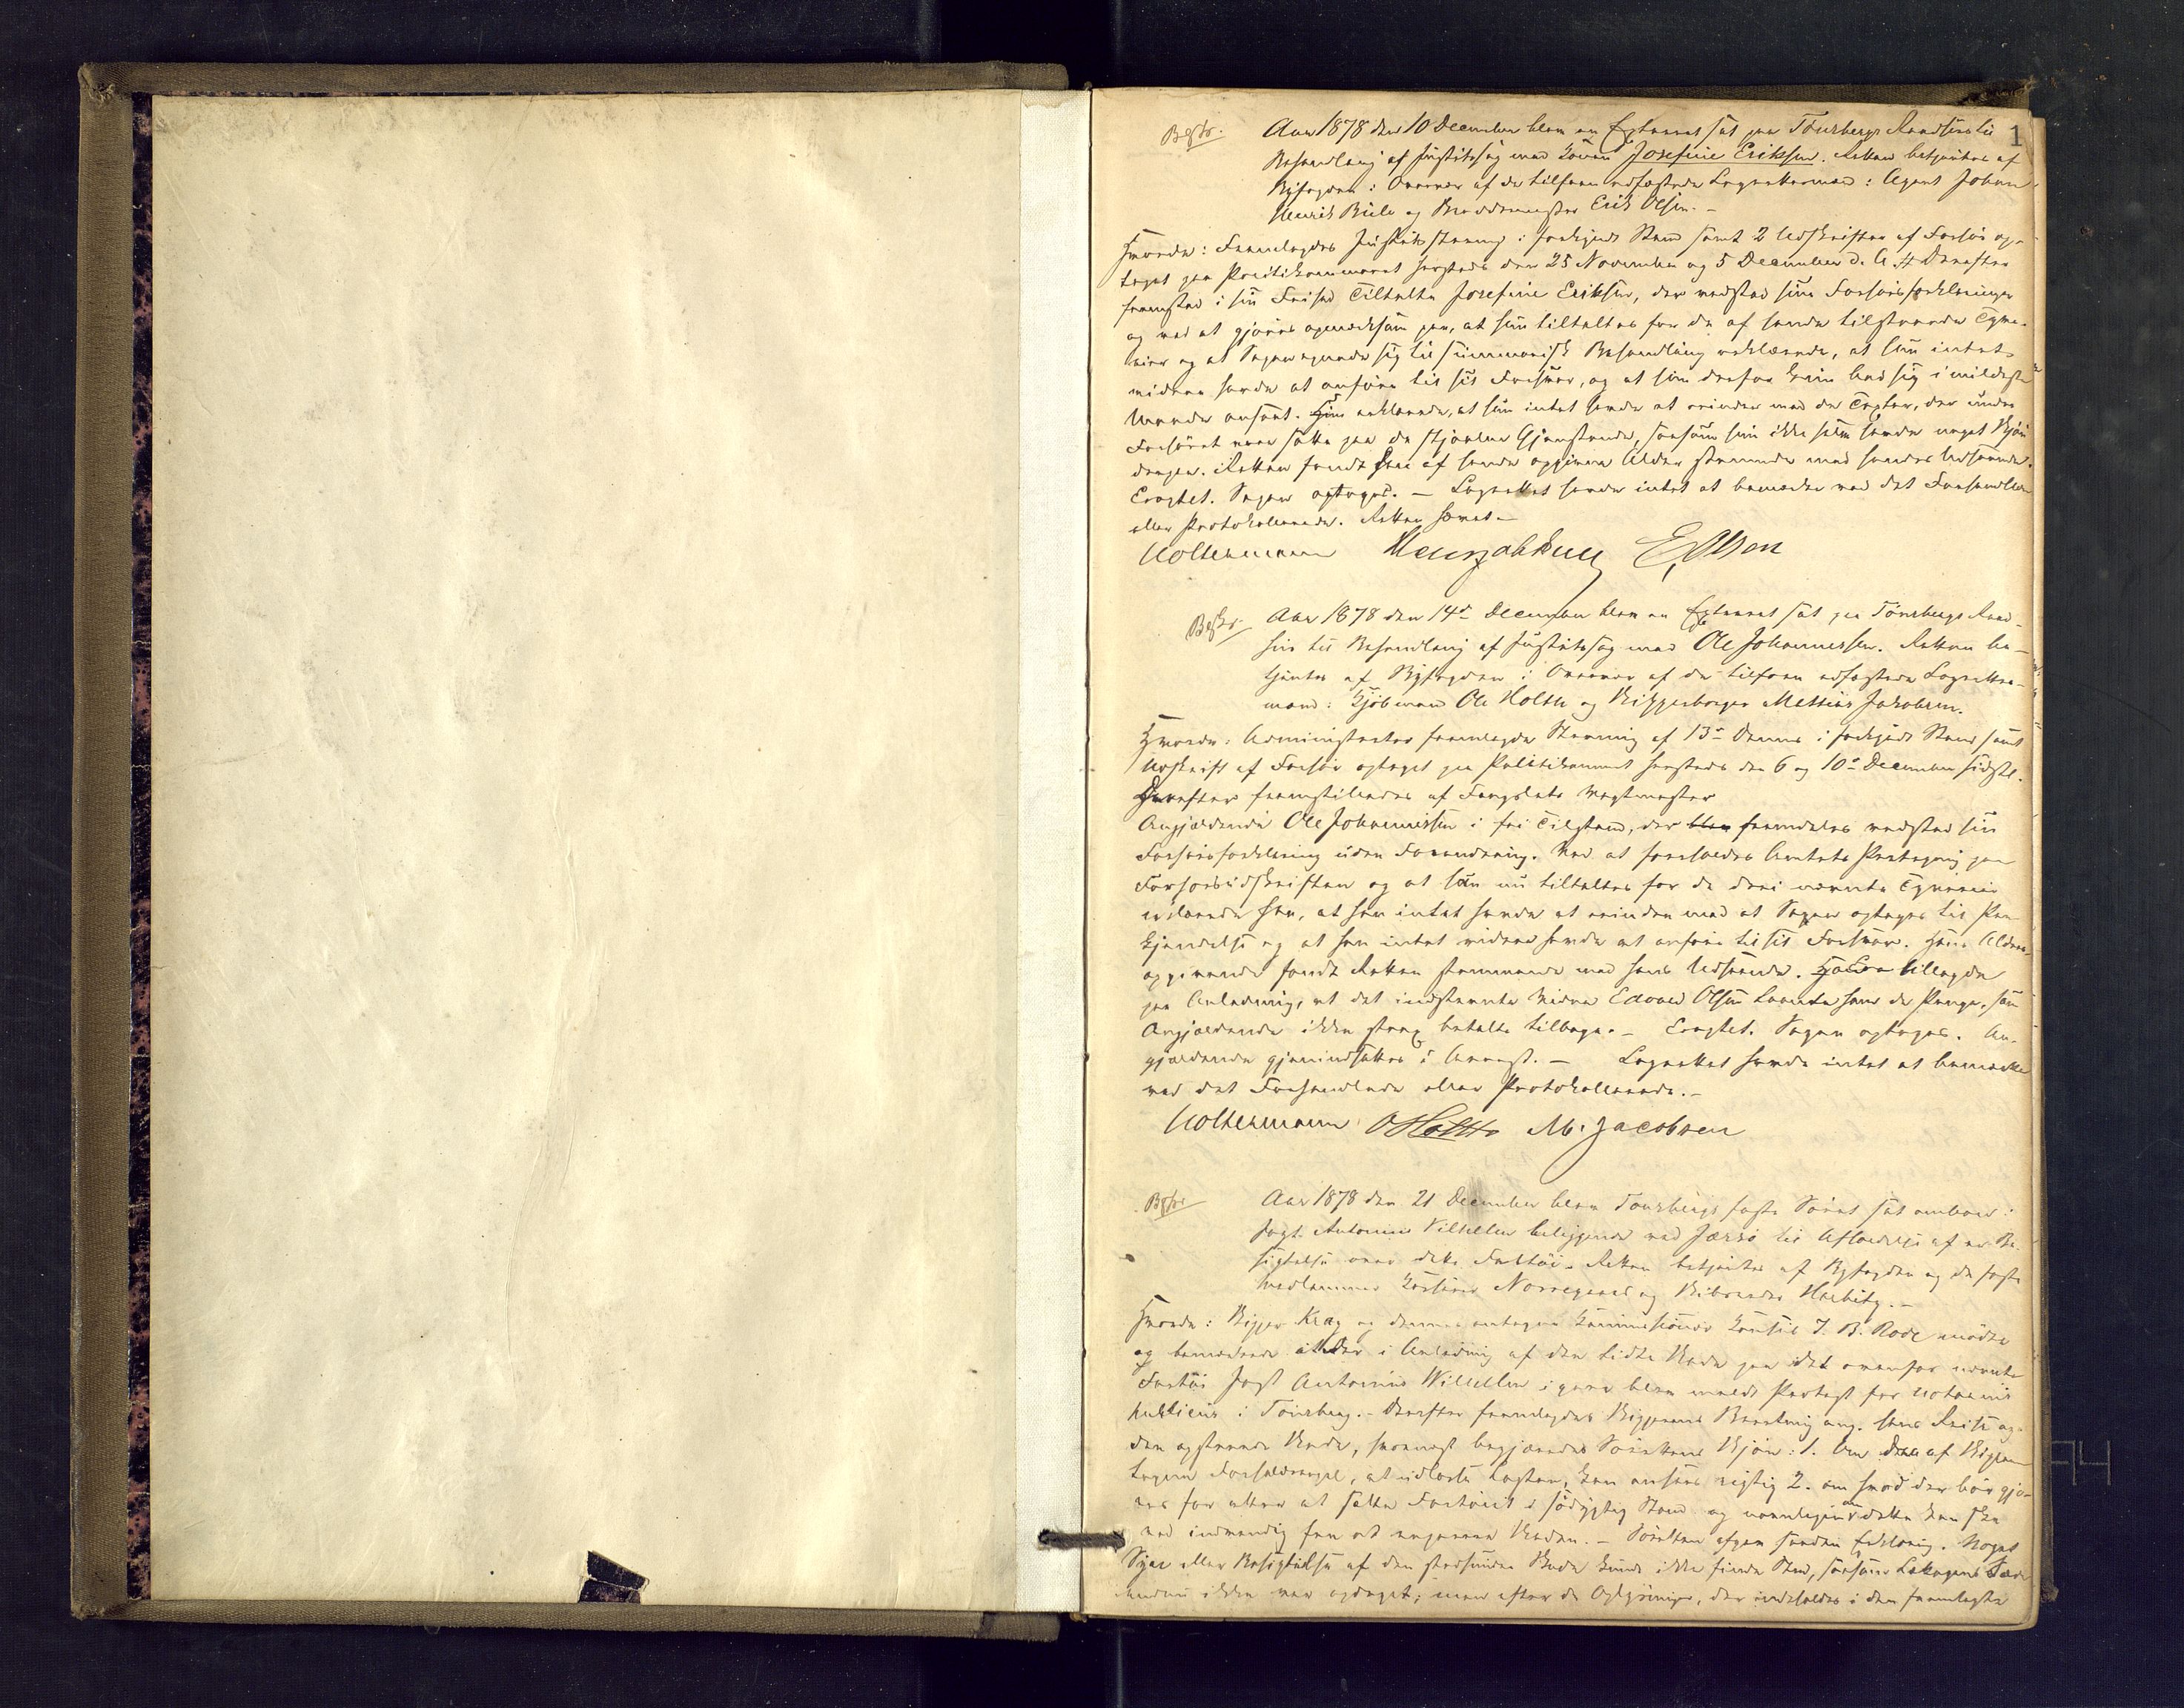 1
Beskr. Aar 1878 den 10 December blev en Extraret sat paa Tönsbergs Raadhus til
Behandling af Justitssag mod Kone Josefine Eriksen. Retten betjentes af
Byfogden i Overvær af de tilforn edfæstede Lagrettesmænd: Agent Johan
Henrik Bull og Brandmester Erik Olsen. –
Hvorda: Fremlagdes Justitsstevning i forkyndt Stand samt 2 Udskrifter af Forhør op-
taget paa Politikammeret hersteds den 25 November og 5 December d. A. Derefter
fremstod i sin Frihed Tiltalte Josefine Eriksen, der vedstod sine Forhørsforklaringer
og ved at gjøres opmærksom paa, at hun tiltaltes for de af hende tilstaaede Tyve-
rier og at Sagen egnede sig til summarisk Behandling erklærede, at hun intet
videre havde at anføre til sit Forsvar, og at hun derfor kun bad sig i mildeste
Maade anseet. Hun erklærede, at hun intet havde at erindre mod de Taxter, der under
Forhøret var satte paa de stjaalne Gjenstande, saasom hun ikke selv havde noget Skjøn
derpaa. Retten fandt den af hende opgivne Alder stemmende med hendes Udseende.
Eragtet. Sagen optages. – Lagrettet havde intet at bemærke ved det Forhandlede
eller Protokollerede. Retten hævet. –
Woltermann Henrjohbull E, Olsen
Beskr. Aar 1878 den 14de December blev en Extraret sat paa Tönsbergs Raad-
hus til Behandling af Justitssag mod Ole Johannessen. Retten be-
tjentes af Byfogden i Overvær af de tilforn edfæstede Lagrettes-
mænd: Kjöbmand Ole Holth og Skibsborger Mathias Jakobsen.
Hvorda: Administrator fremlagde Stevning af 13de dennes i forkyndt Stand samt
Udskrift af Forhør optaget paa Politikammeret hersteds den 6 og 10de December sidstl.
Derefter fremstilledes af Fængslets Vagtmester
Angjældende Ole Johannessen i fri Tilstand, der blev fremdeles vedstod sin
Forhørsforklaring uden Forandring. Ved at foreholdes Amtets Paategning paa
Forhørsudskriften og at han nu tiltaltes for de deri nævnte Tyverier
erklærede han, at han intet havde at erindre mod at Sagen optages til Paa-
kjendelse og at han intet videre havde at anføre til sit Forsvar. Hans Alders
opgivende fandt Retten stemmende med hans Udseende. tillagde
paa Anledning, at det indstevnte Vidne Edvard Olsen laante ham de Penge, som
Angjældende ikke strax betalte tilbage. – Eragtet. Sagen optages. An-
gjældende gjenindsættes i Arrest. – Lagrettet havde intet at bemærke
ved det Forhandlede eller Protokollerede. –
Woltermann OHolth M. Jacobsen
Beskr. Aar 1878 den 21 December blev Tönsbergs faste Söret sat ombord i
Jagt Antonius Vilhelm beliggende ved Jærsö til Afholdelse af en Be-
sigtelse over dette Fartöi. Retten betjentes af Byfogden og de faste
Medlemmer Norregaard og Skibsreder Harbitz. –
Hvorda: Skipper Krag og dennes antagne Kommissionær Konsul J. B. Rode mödte
og bemærkede at der i Anledning af den lidte Skade paa det ovenfor nævnte
Fartöi Jagt Antonius Wilhelm igaar blev meldt Protest for Notarius
publicus i Tönsberg. – Derefter fremlagdes Skipperens Beretning ang. hans Reise og
den opstaaede Skade, hvornæst begjæredes Sörettens Skjön: 1. Om den af Skipperen
tagne Forholdsregel, at udlosse Lasten, kan ansees rigtig 2. om hvad der bör gjö-
res for atter at sætte Fartöiet i södygtig Stand og navnligen om dette kan ske
ved indvendig fra at reparere Skaden. – Söretten afgav saadan Erklæring. Noget
Syn eller Besigtelse af den stedfundne Skade kunde ikke finde Sted, saasom Lækagens Sæde
endnu ikke var opdaget; men efter de Oplysninger, der indeholdes i den fremlagte